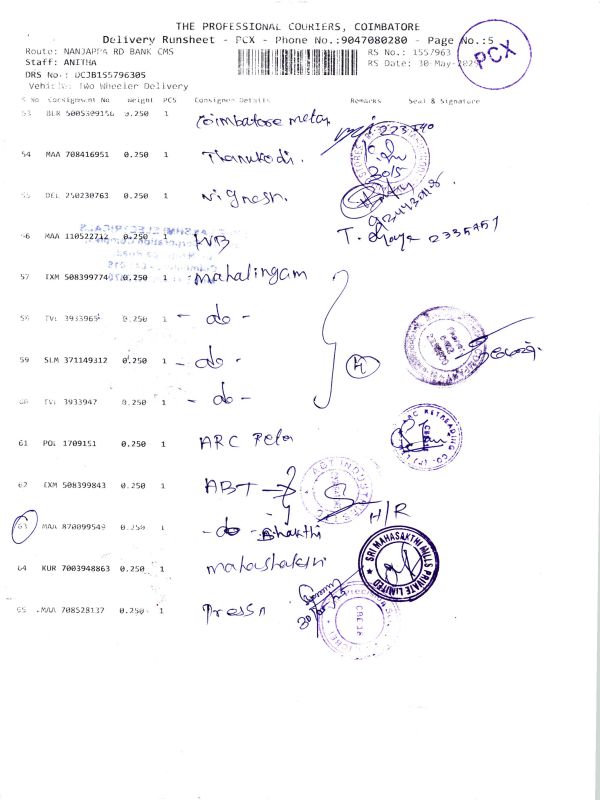 THE PROFESSIONAL COURIERS, COIMBATORE
Delivery Runsheet - PCX - Phone No.:9047080280 - Page No.:5
PCX
Route: NANJAPPA RD BANK CMS RS No.: 1557963
Staff: ANITHA RS Date: 30-May-202
DRS No.: DCJB155796305
Vehicle: Two Wheeler Delivery
S No Consignment No Weight PCS Consignee Details Remarks Seal & Signature
53 BLR 5005309156 0.250 1 Coimbatore metal
54 MAA 708416951 0.250 1
55 DEL 250230763 0.250 1 Vignesh.
56 MAA 110522712 0.250 1 WB T. 2335757
57 IXM 508399774 0.250 1 mahalingam
58 TVL 3933965 0.250 1 - do -
59 SLM 371149312 0.250 1 - do - 4
60 TVL 3933947 0.250 1 - do -
61 POL 1709151 0.250 1 ARC
ARC RETREADING CO. (P) L
62 IXM 508399843 0.250 1 ABT
H/R
63 MAA 870099549 0.250 1 - do - Bhakthi
64 KUR 7003948863 0.250 1 mahashakthi
SRI MAHASAKTHI MILLS PRIVATE LIMITED
65 MAA 708528137 0.250 1
CBE 18